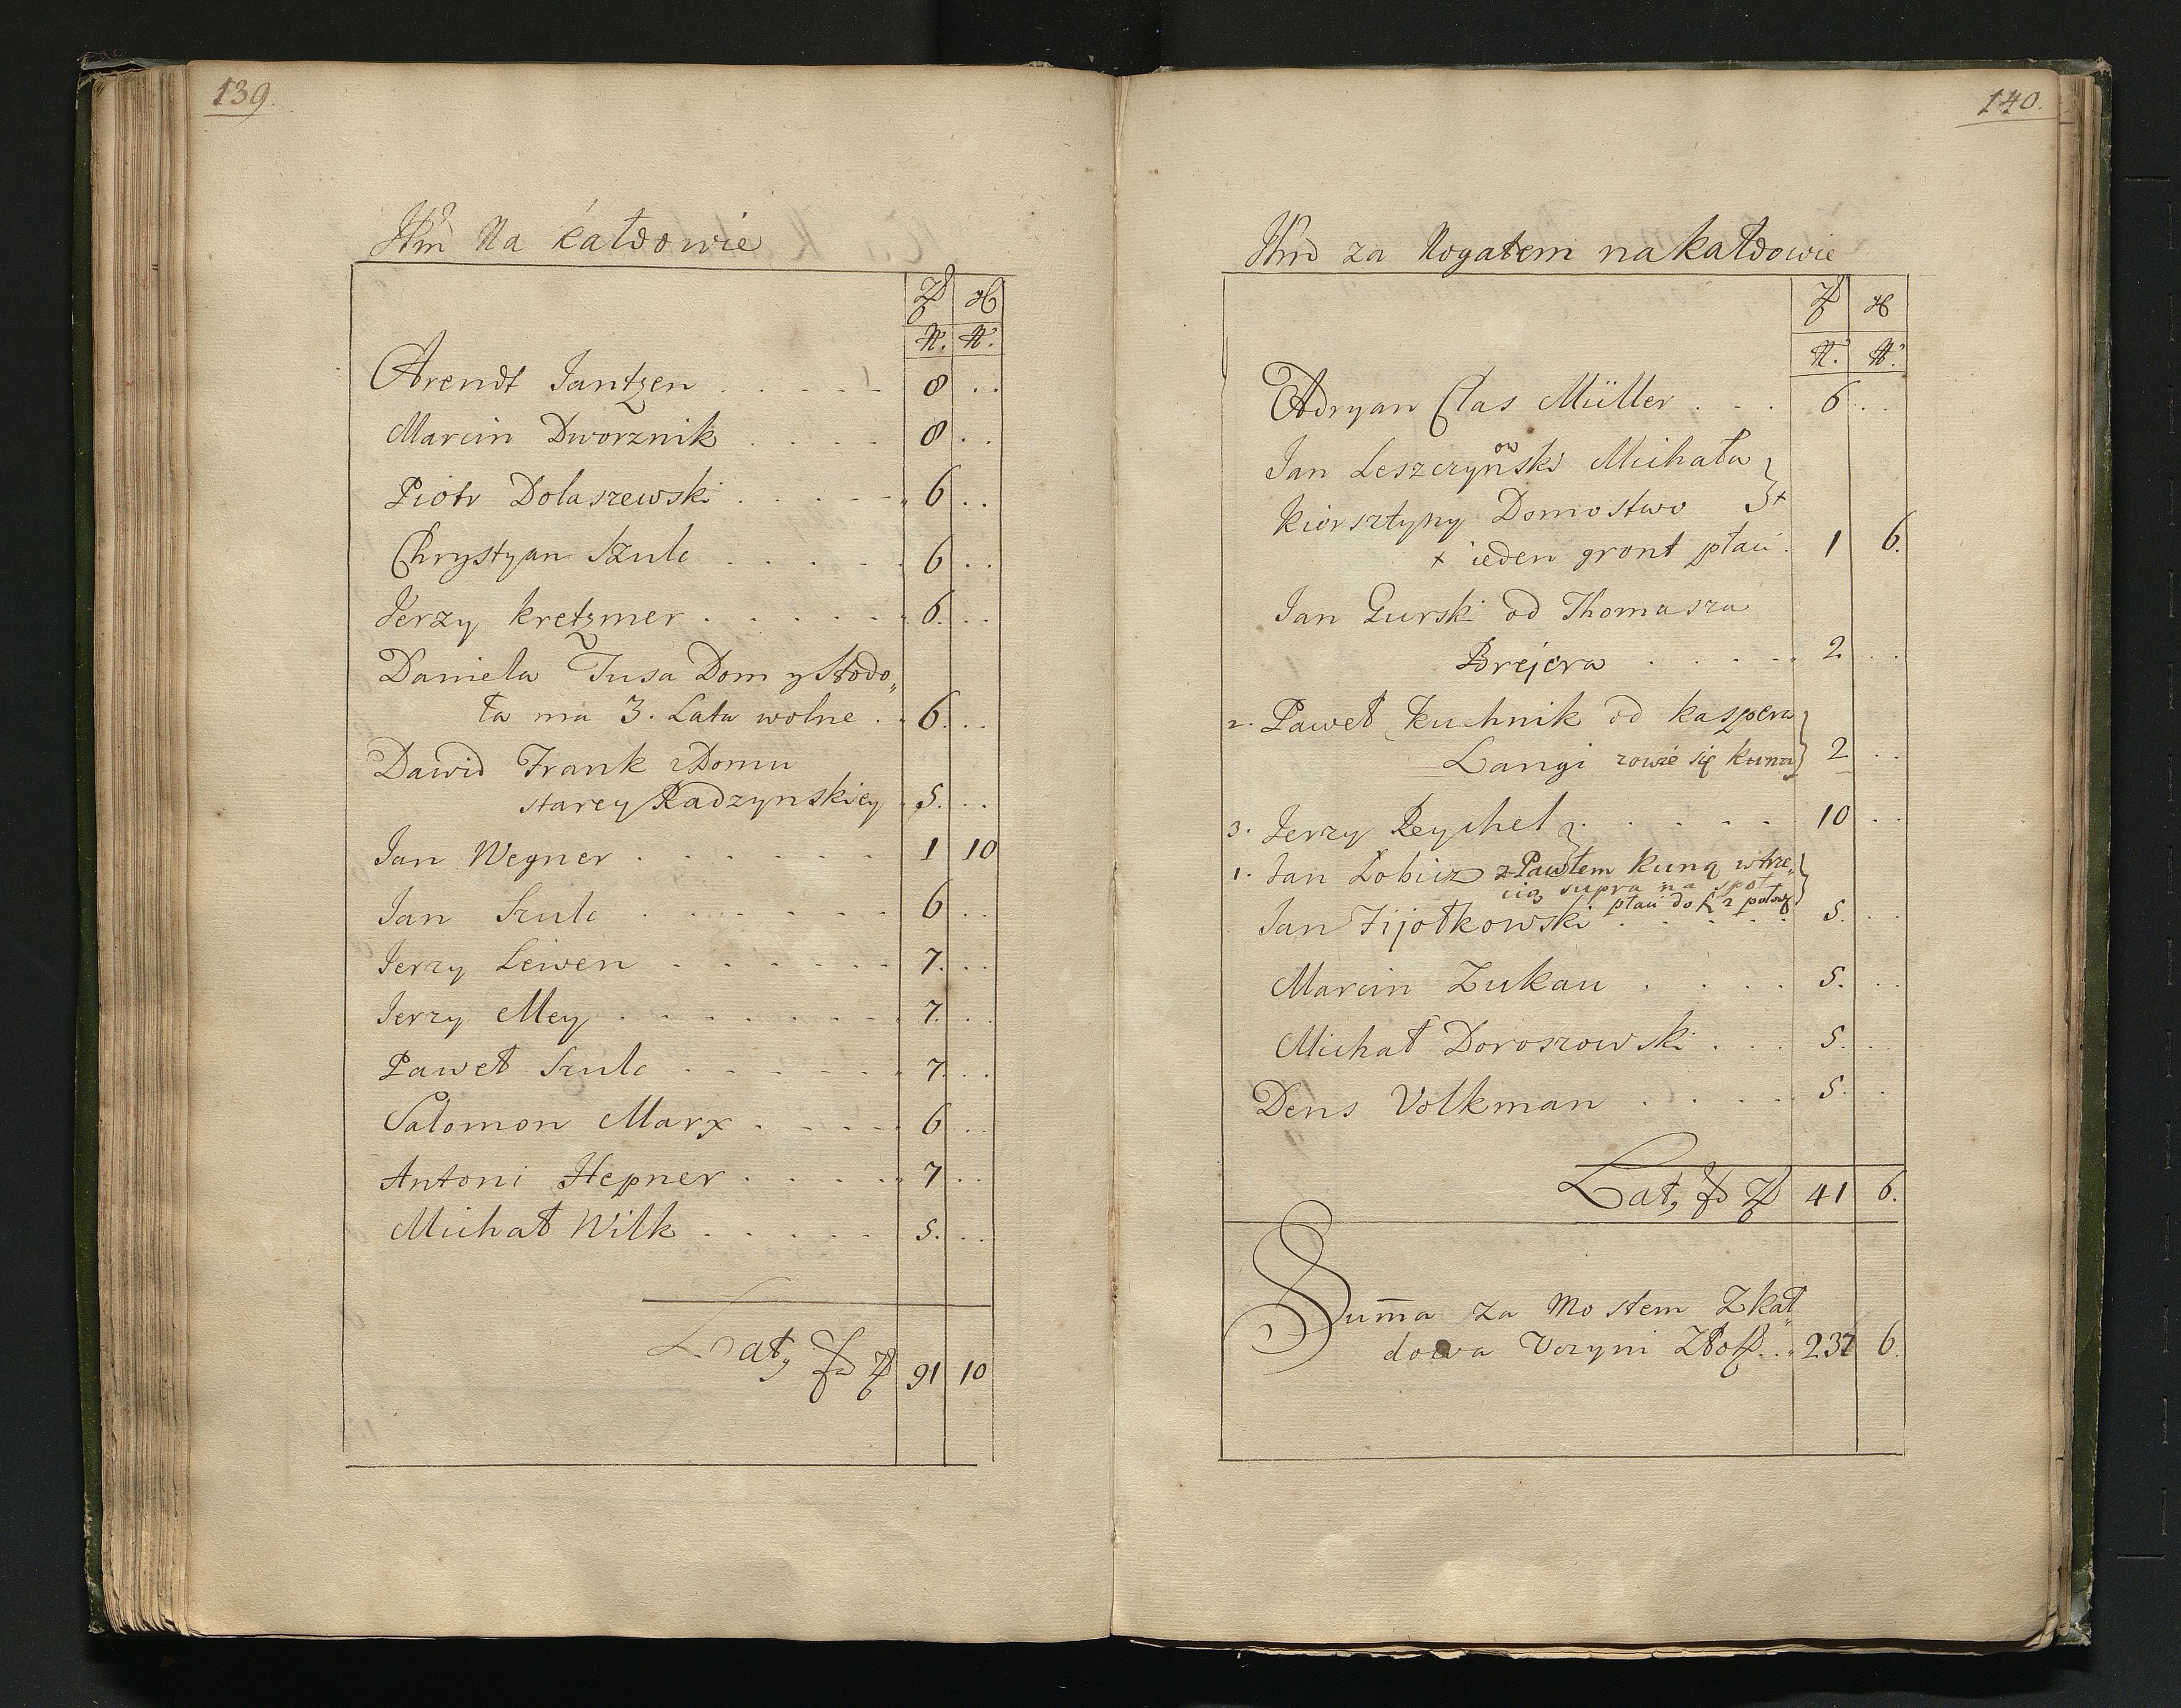 139.
Itm̃ Na Kałdowie
N. N.
Arendt Jantzen . . . . . 8 . .
Marcin Dworznik . . . . 8 . .
Piotr Dolaszewski . . . . . 6 . .
Chrystyan Szulc . . . . . 6 . .
Jerzy Kretzmer . . . . . . 6. . .
Daniela Tusa Dom y Stodo„
ła ma 3. Lata wolne . 6. . .
Dawid Frank z Domu
starey Radzynskiey 5. . .
Jan Wegner . . . . . . 1 10
Jan Szulc . . . . . . 6 . .
Jerzy Lewen . . . . . . 7. . .
Jerzy Mey . . . . . . . 7. . .
Paweł Szulc . . . . . . 7. . .
Salomon Marx . . . . . 6 . .
Antoni Hepner . . . . . 7 . .
Michał Wilk . . . . . 5. . .
Lat, 91 10
140.
Itm̃ za Nogatem na Kałdowie
N. N.
Adryan Clas Müller . . . 6 . .
ow
Jan Leszczynski Michała
Kiersztyny Domostwo +
+ ieden gront płaci . 1 6.
Jan Gurski od Thomasza
Brejera . . . . . 2 . .
2. Paweł Kuchnik od Kaspera
Langi zowie się Kuna 2 . .
3. Jerzy Reychel . . . . . 10 . .
1. Jan Lobicz z Pawłem Kuną w trze„
cią supra na społ
płaci do połowy
Jan Fijołkowski . . . . . 5. . .
Marcin Zukau . . . . 5. . .
Michał Doroszowski . . . 5. . .
Dens Volkman . . . . . 5. . .
Lat, 41 6.
Sum̄a za Mostem Z Kał„
dowa Uczyni Złot . . 237 6.